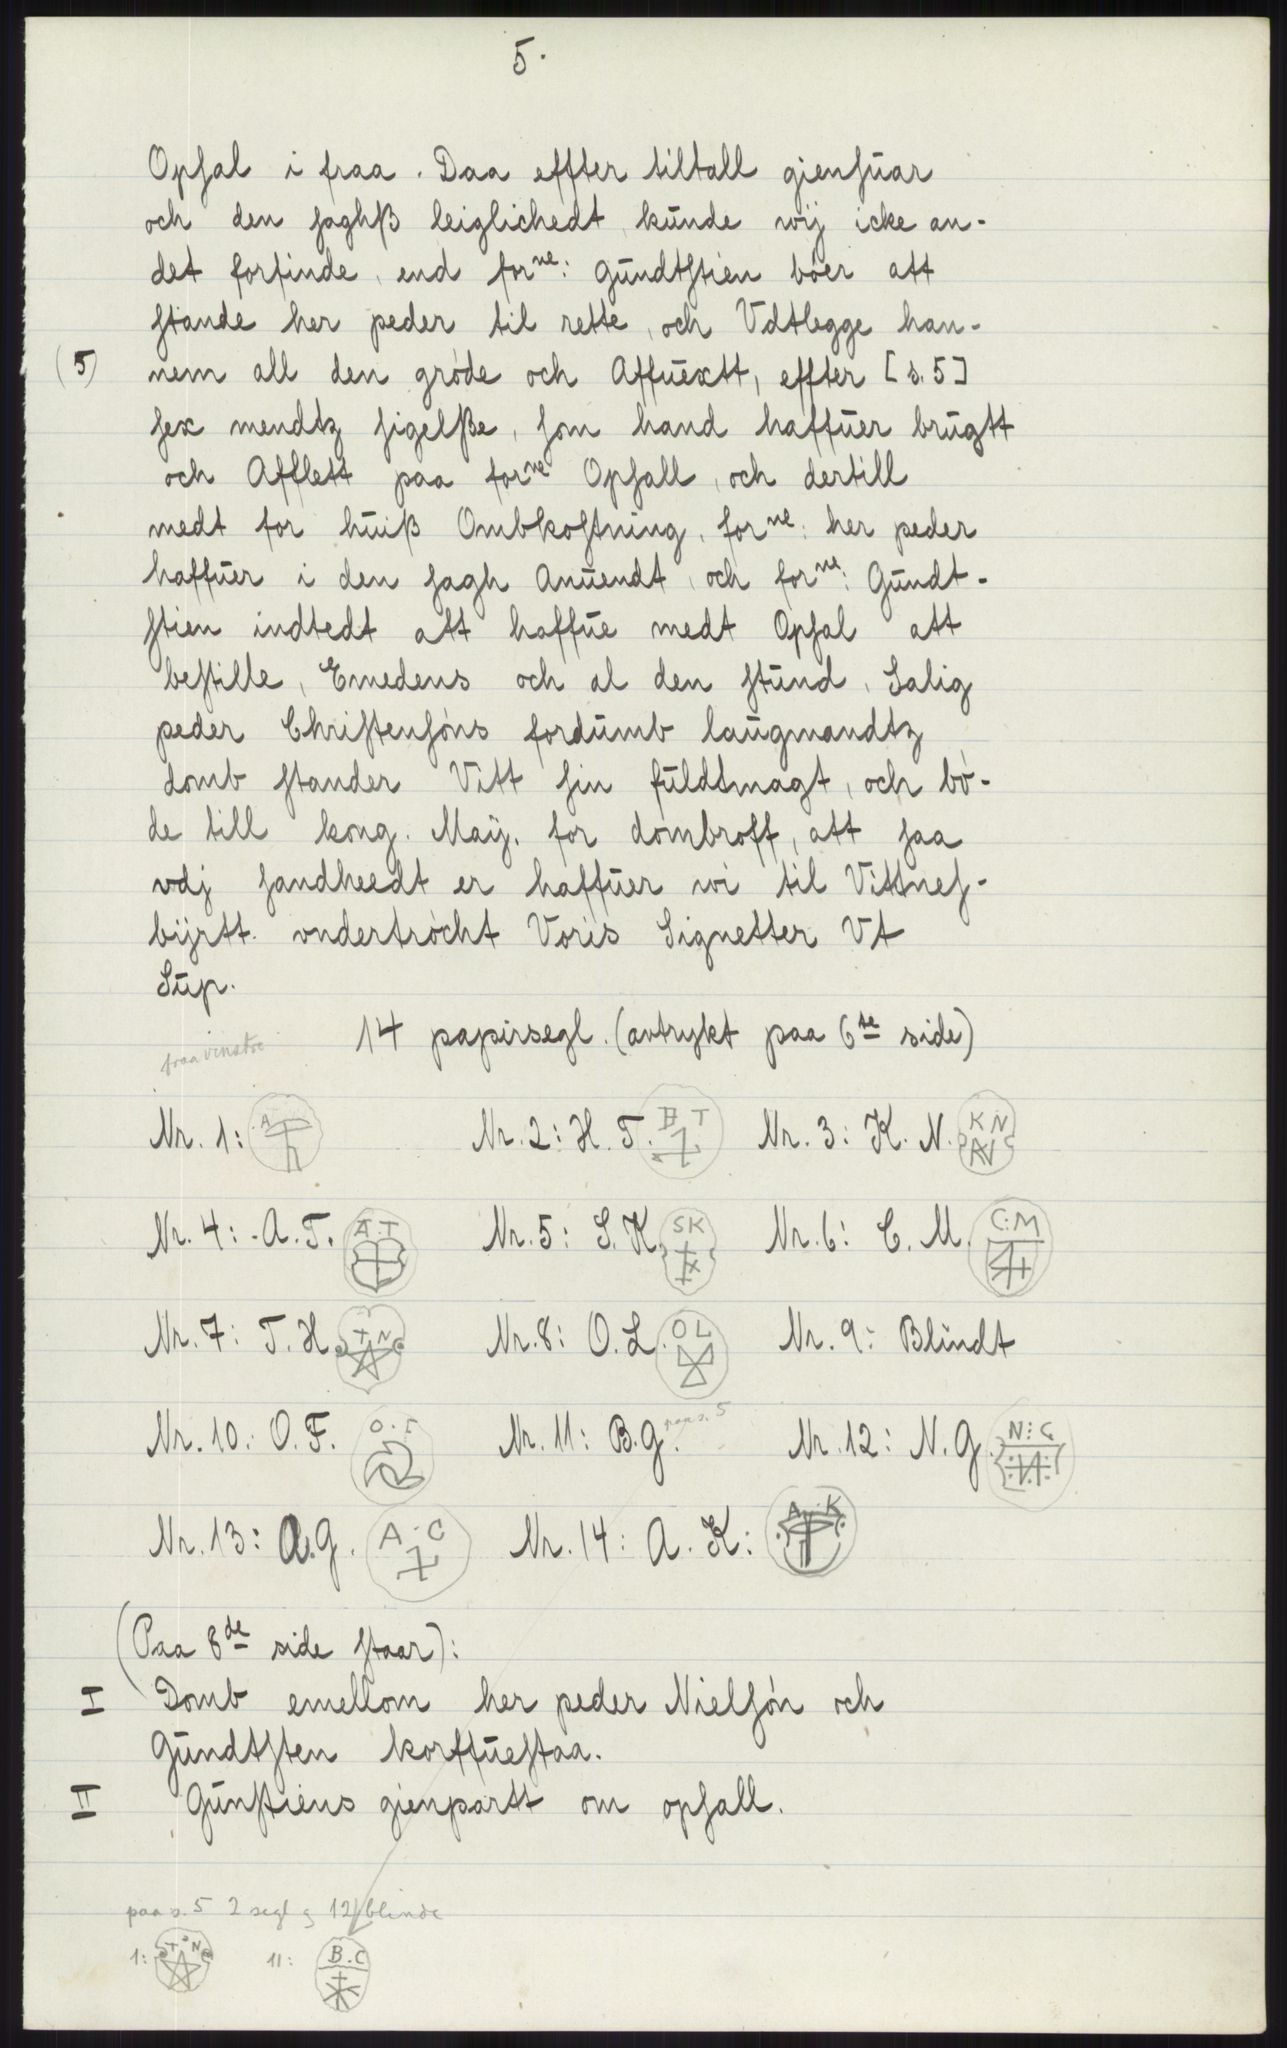 5.
Opsal i fraa. Daa effter tiltall giensuar
och den saghß leiglichedt kunde wij icke an-
det forfinde, end forne: gundtstien bóer att
stande her peder til rette, och Vdtlegge han-
(5) nem all den gróde och Affuextt, effter [s. 5]
sex mendtz sigelße, som hand haffuer brugtt
och Afflett paa forne Opsall, och dertill
medt for huiß Ombkostning, forne: her peder
haffuer i den sagh Anuendt, och forne: Gundt-
stien indtedt att haffue medt Opsal att
bestille, Emedens och al den stund, Salig
peder Christensóns fordumb laugmandtz
domb stander Vitt sin fuldtmagt, och bó-
de till kong. Maij. for dombroff, att saa
vdj sandheedt er haffuer wi til Vittnes-
bijrtt vndertrócht Voris Signetter Vt
Sup.
14 papirsegl. (avtrykt paa 6te side)
fraa vinstre
Nr. 1: A Nr. 2: H. T. B T Nr. 3: K. N. K N
Nr. 4: A. T. A. T Nr. 5: S. K. SK Nr. 6: C. M. C. M
Nr. 7: T. H. T N Nr. 8: O. L. O L Nr. 9: Blindt
Nr. 10: O. F. O. F Nr. 11: B. G. paa s. 5 Nr. 12: N. G. N: G
Nr. 13: A. G. A. C Nr. 14: A. K: A. K
(Paa 8de side staar):
I Domb emellom her peder Nielsón och
Gundtsten korffuestaa.
II Gunstiens gienpartt om opsall.
paa s. 5 2 segl og 12 blinde
1: T N 11: B. C